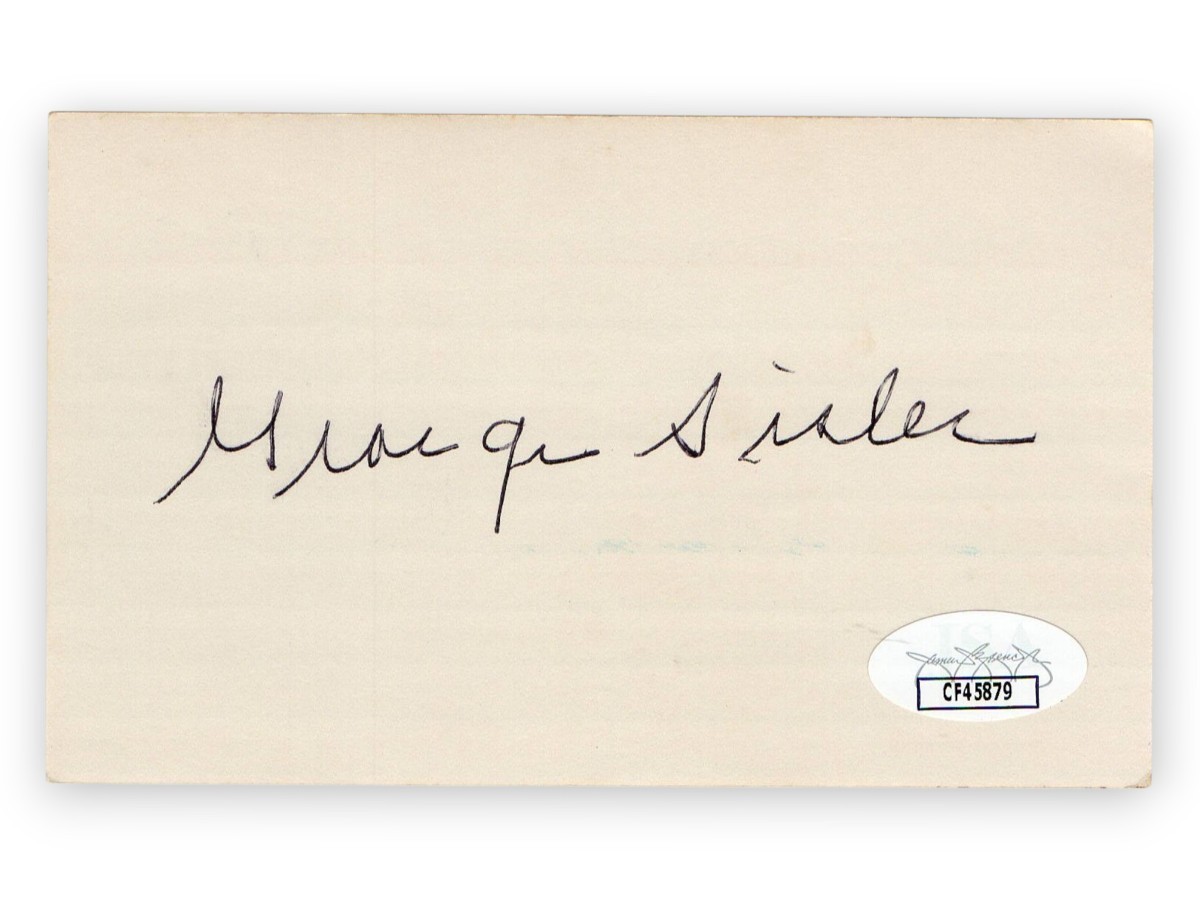 George Sisler
JSA
James Spence
CF45879